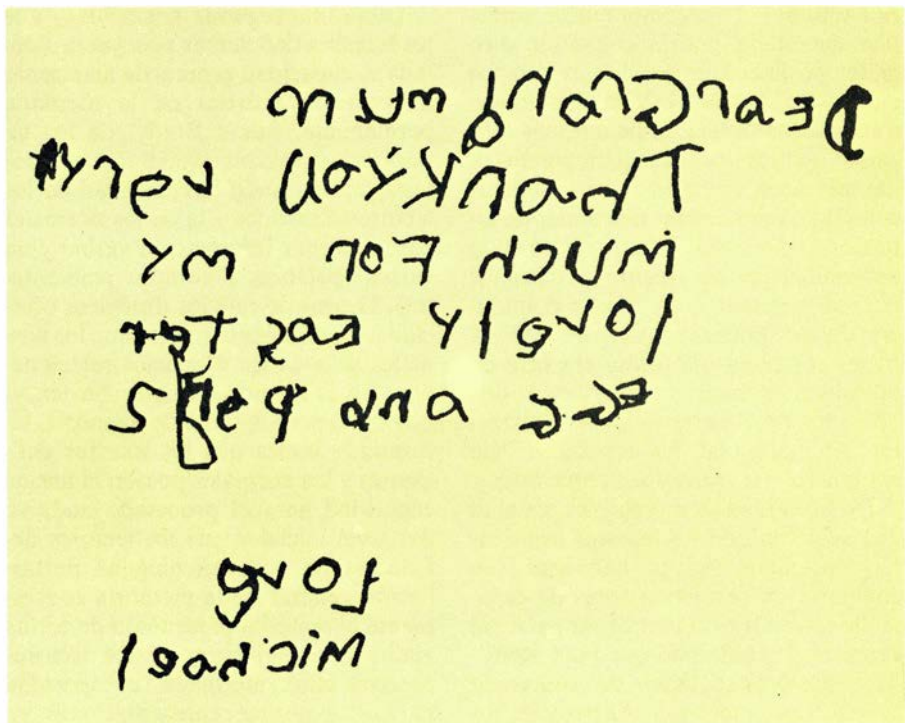 Dear Grand mum
Thank you very
much For my
lovely Easter
EGG and
Love
Michael